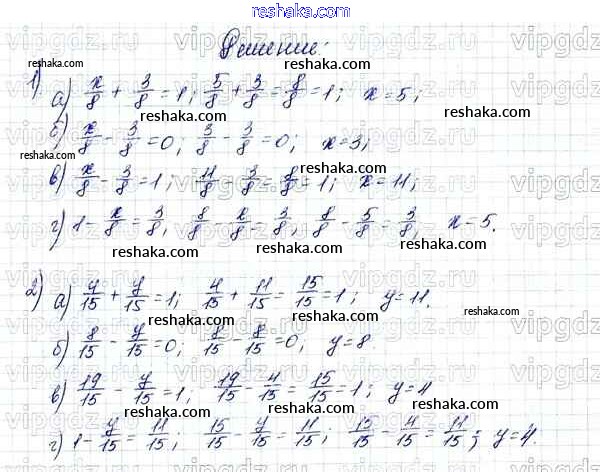 reshaka.com
Решение:
1) а) x/8 + 3/8 = 1; 5/8 + 3/8 = 8/8 = 1; x = 5;
б) x/8 - 3/8 = 0; 3/8 - 3/8 = 0; x = 3;
в) x/8 - 3/8 = 1; 11/8 - 3/8 = 8/8 = 1; x = 11;
г) 1 - x/8 = 3/8, 8/8 - x/8 = 3/8, 8/8 - 5/8 = 3/8, x = 5.
2) а) 4/15 + y/15 = 1; 4/15 + 11/15 = 15/15 = 1; y = 11.
б) 8/15 - y/15 = 0; 8/15 - 8/15 = 0, y = 8.
в) 19/15 - y/15 = 1; 19/15 - 4/15 = 15/15 = 1; y = 4
г) 1 - y/15 = 11/15; 15/15 - y/15 = 11/15; 15/15 - 4/15 = 11/15; y = 4.
vipgdz
reshaka.com